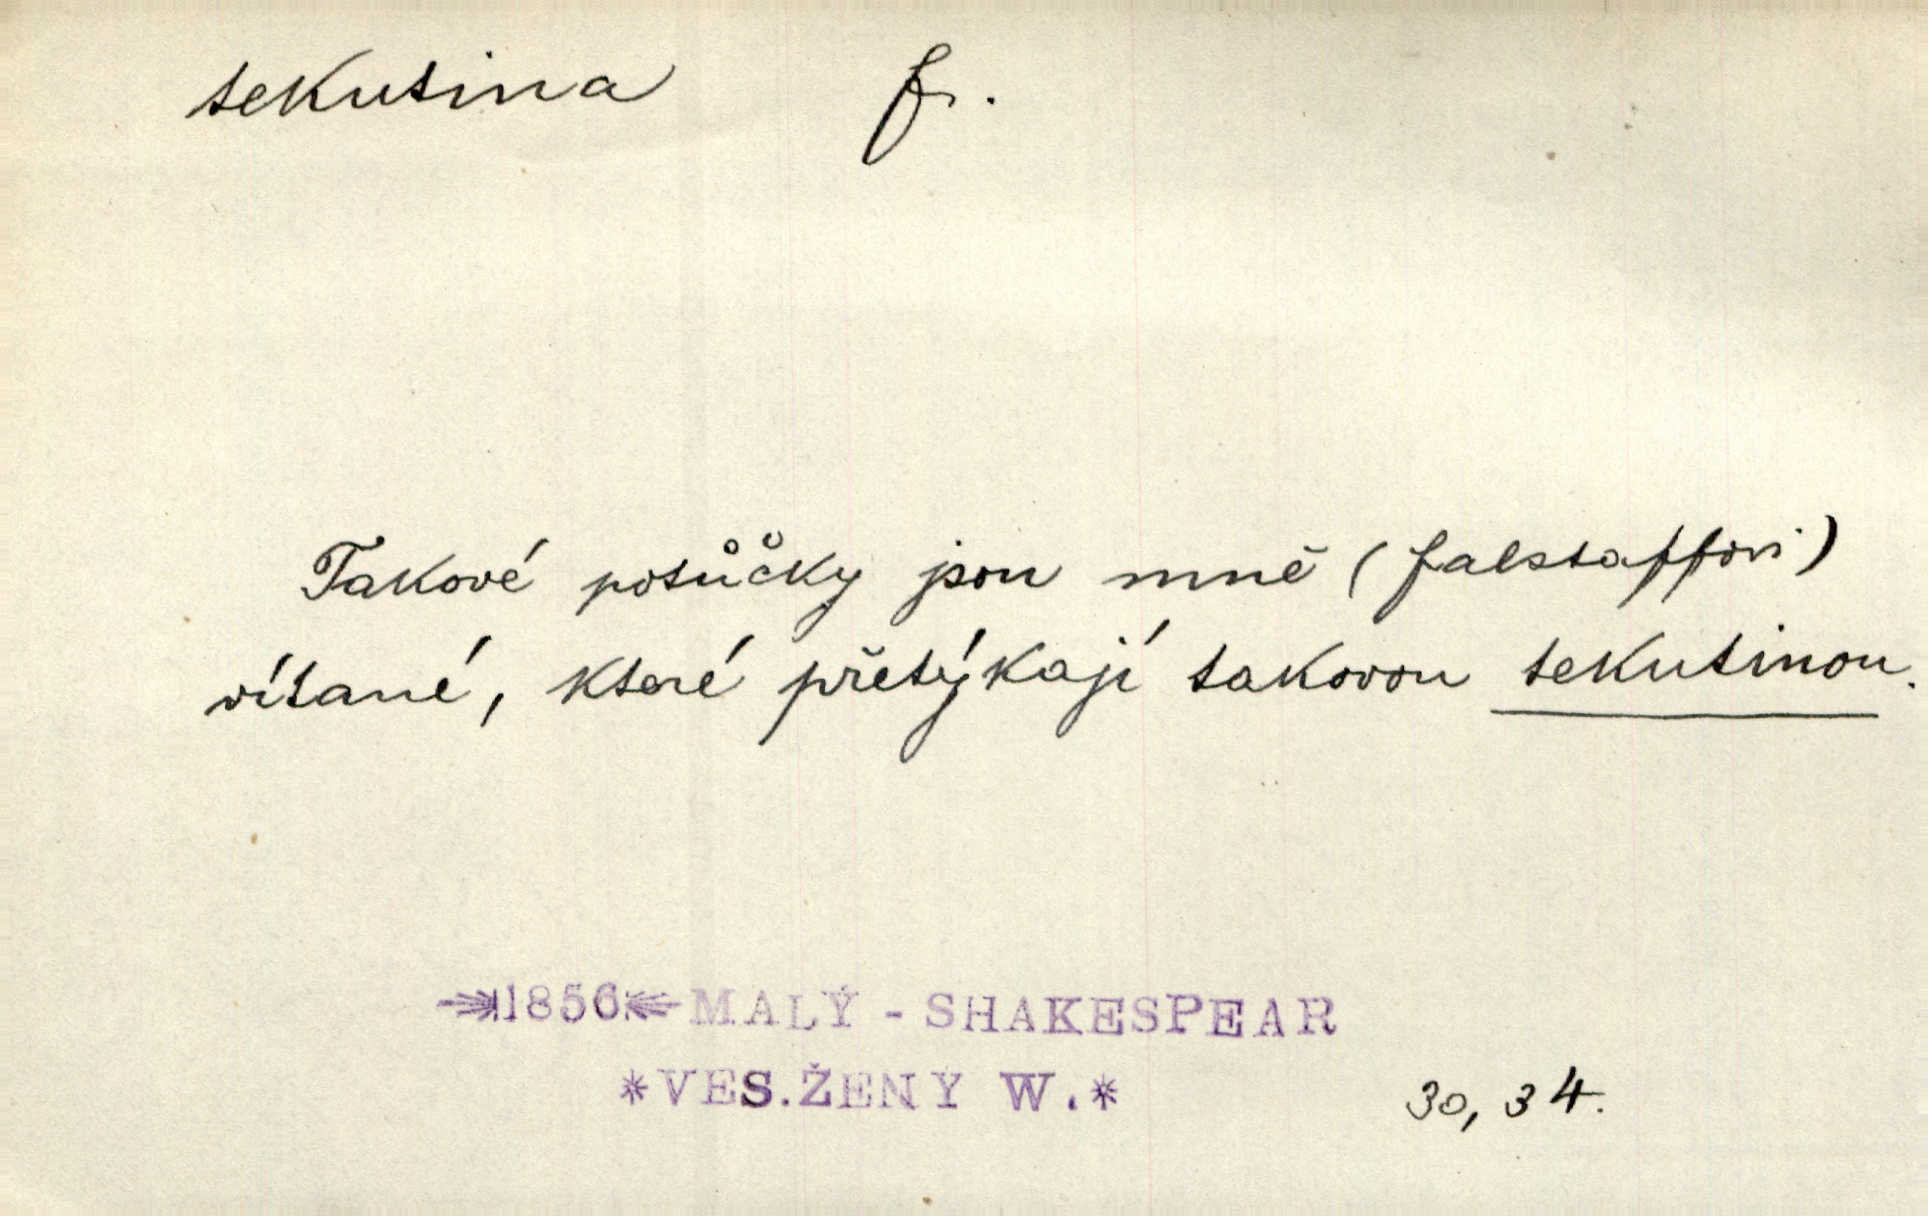 tekutina f.
Takové potůčky jsou mně (Falstaffovi)
vítané, které přetýkají takovou tekutinou.
1856 MALÝ - SHAKESPEAR
*VES.ŽENY W.*
30, 34.